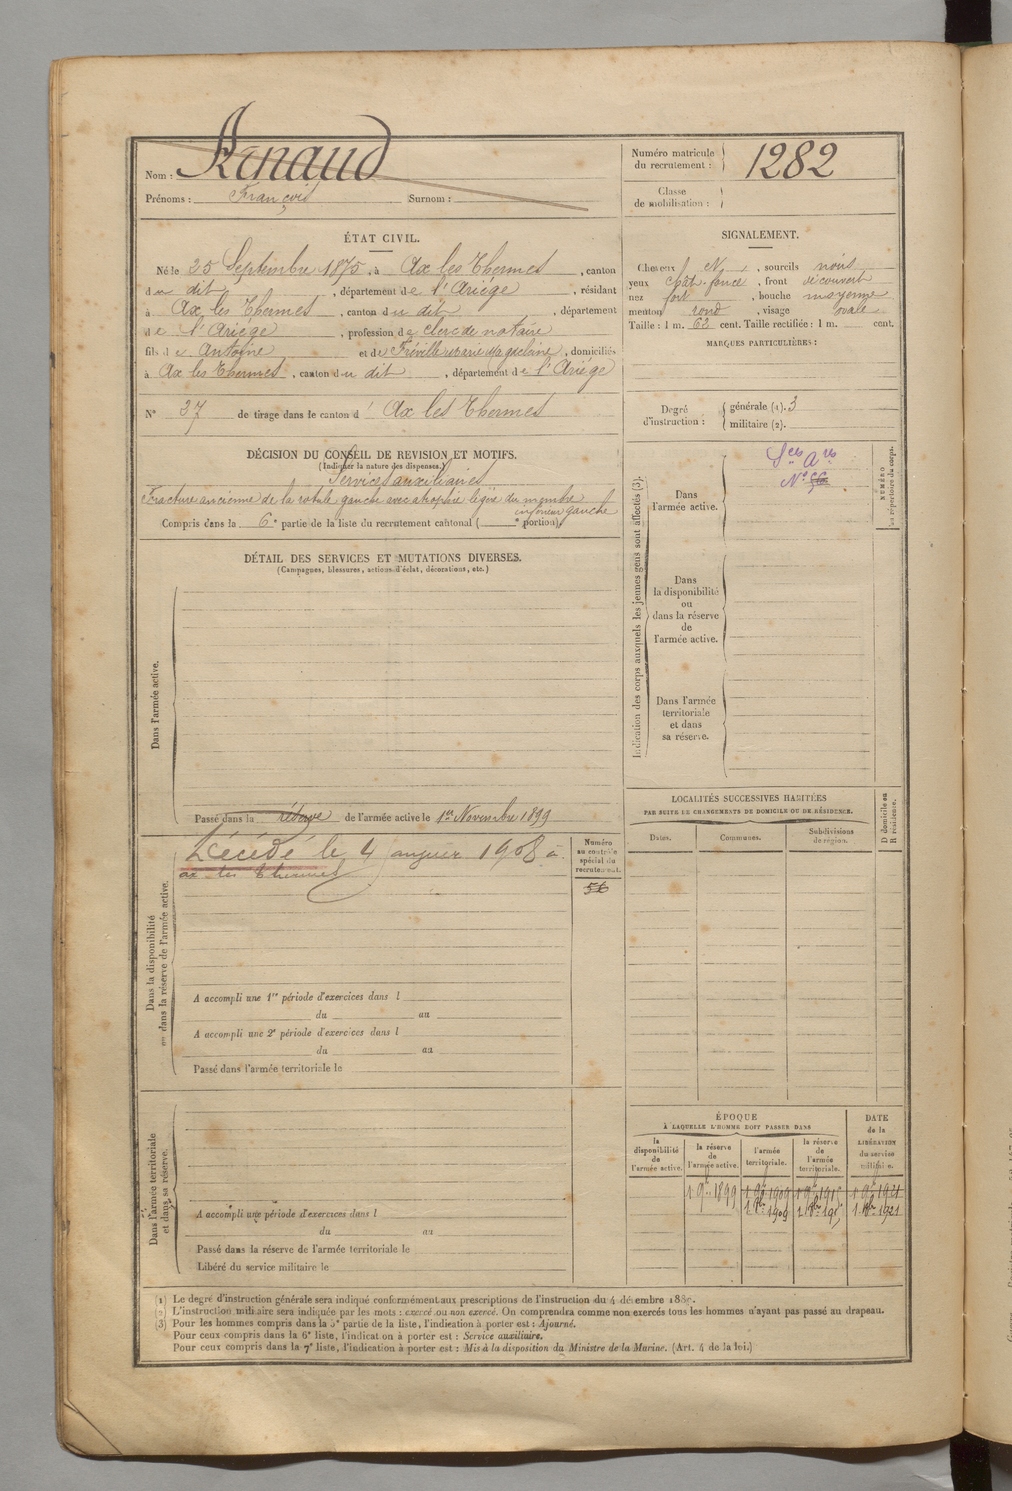 Nom : Arnaud
Prénoms : François Surnom :
Numéro matricule du recrutement : 1282
Classe de mobilisation :
ÉTAT CIVIL.
Né le 25 Septembre 1875, à Ax les Thermes, canton
du dit, département de l'Ariége, résidant
à Ax les Thermes, canton du dit, département
de l'Ariége, profession de clerc de notaire
fils de Antoine et de Fréville Marie Magdelaine, domiciliés
à Ax les Thermes, canton du dit, département de l'Ariége
N° 37 de tirage dans le canton d' Ax les Thermes
SIGNALEMENT.
Cheveux N, sourcils noirs
yeux chât. foncé, front découvert
nez fort, bouche moyenne
menton rond, visage ovale
Taille : 1 m. 62 cent. Taille rectifiée : 1 m. cent.
MARQUES PARTICULIÈRES :
Degré d'instruction : générale (1). 3
militaire (2).
DÉCISION DU CONSEIL DE REVISION ET MOTIFS.
(Indiquer la nature des dispenses.)
Services auxiliaires
Fracture ancienne de la rotule gauche avec atrophie légère du membre
inférieur gauche
Compris dans la 6e partie de la liste du recrutement cantonal ( e portion).
DÉTAIL DES SERVICES ET MUTATIONS DIVERSES.
(Campagnes, blessures, actions d'éclat, décorations, etc.)
Dans l'armée active.
Passé dans la réserve de l'armée active le 1er Novembre 1899
Indication des corps auxquels les jeunes gens sont affectés (3).
Dans l'armée active.
Sces Ares
N° 56
Dans la disponibilité ou dans la réserve de l'armée active.
Dans l'armée territoriale et dans sa réserve.
NUMÉRO au répertoire du corps.
Dans la disponibilité ou dans la réserve de l'armée active.
Décédé le 4 janvier 1908 à
ax les Thermes
Numéro au contrôle spécial du recrutement.
56
A accompli une 1re période d'exercices dans l
du au
A accompli une 2e période d'exercices dans l
du au
Passé dans l'armée territoriale le
LOCALITÉS SUCCESSIVES HABITÉES
PAR SUITE DE CHANGEMENTS DE DOMICILE OU DE RÉSIDENCE.
D domicile ou R résidence.
Dates. Communes. Subdivisions de région.
Dans l'armée territoriale et dans sa réserve.
A accompli une période d'exercices dans l
du au
Passé dans la réserve de l'armée territoriale le
Libéré du service militaire le
ÉPOQUE
À LAQUELLE L'HOMME DOIT PASSER DANS
la disponibilité de l'armée active.
la réserve de l'armée active.
l'armée territoriale.
la réserve de l'armée territoriale.
DATE de la LIBÉRATION du service militaire.
1 9bre 1899 1 9bre 1909 1 9bre 1915 1 9bre 1921
(1) Le degré d'instruction générale sera indiqué conformément aux prescriptions de l'instruction du 4 décembre 1889.
(2) L'instruction militaire sera indiquée par les mots : exercé ou non exercé. On comprendra comme non exercés tous les hommes n'ayant pas passé au drapeau.
(3) Pour les hommes compris dans la 5e partie de la liste, l'indication à porter est : Ajourné.
Pour ceux compris dans la 6e liste, l'indication à porter est : Service auxiliaire.
Pour ceux compris dans la 7e liste, l'indication à porter est : Mis à la disposition du Ministre de la Marine. (Art. 4 de la loi.)